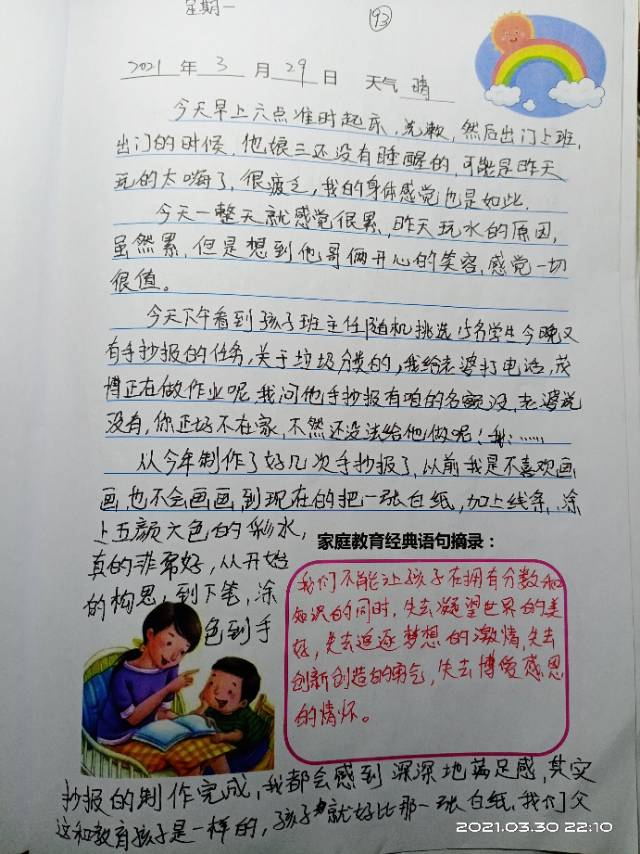 星期一
93
2021 年 3 月 29 日 天气 晴
今天早上六点准时起床,洗漱,然后出门上班,
出门的时候,他娘三还没有睡醒的,可能是昨天
玩的太嗨了,很疲乏,我的身体感觉也是如此,
今天一整天就感觉很累,昨天玩水的原因,
虽然累,但是想到他哥俩开心的笑容,感觉一切
很值。
今天下午看到孩子班主任随机挑选15名学生今晚又
有手抄报的任务,关于垃圾分类的,我给老婆打电话,茂
博正在做作业呢,我问他手抄报有咱的名额没,老婆说
没有,你正好不在家,不然还没法给他做呢!我:……
从今年制作了好几次手抄报了,以前我是不喜欢画
画,也不会画画,到现在的把一张白纸,加上线条,涂
上五颜六色的彩水,
真的非常好,从开始
的构思,到下笔,涂
色到手
家庭教育经典语句摘录:
我们不能让孩子在拥有分数和
知识的同时,失去凝望世界的美
好,失去追逐梦想的激情,失去
创新创造的勇气,失去博爱感恩
的情怀。
抄报的制作完成,我都会感到深深地满足感,其实
这和教育孩子是一样的,孩子就好比那一张白纸,我们父
2021.03.30 22:10